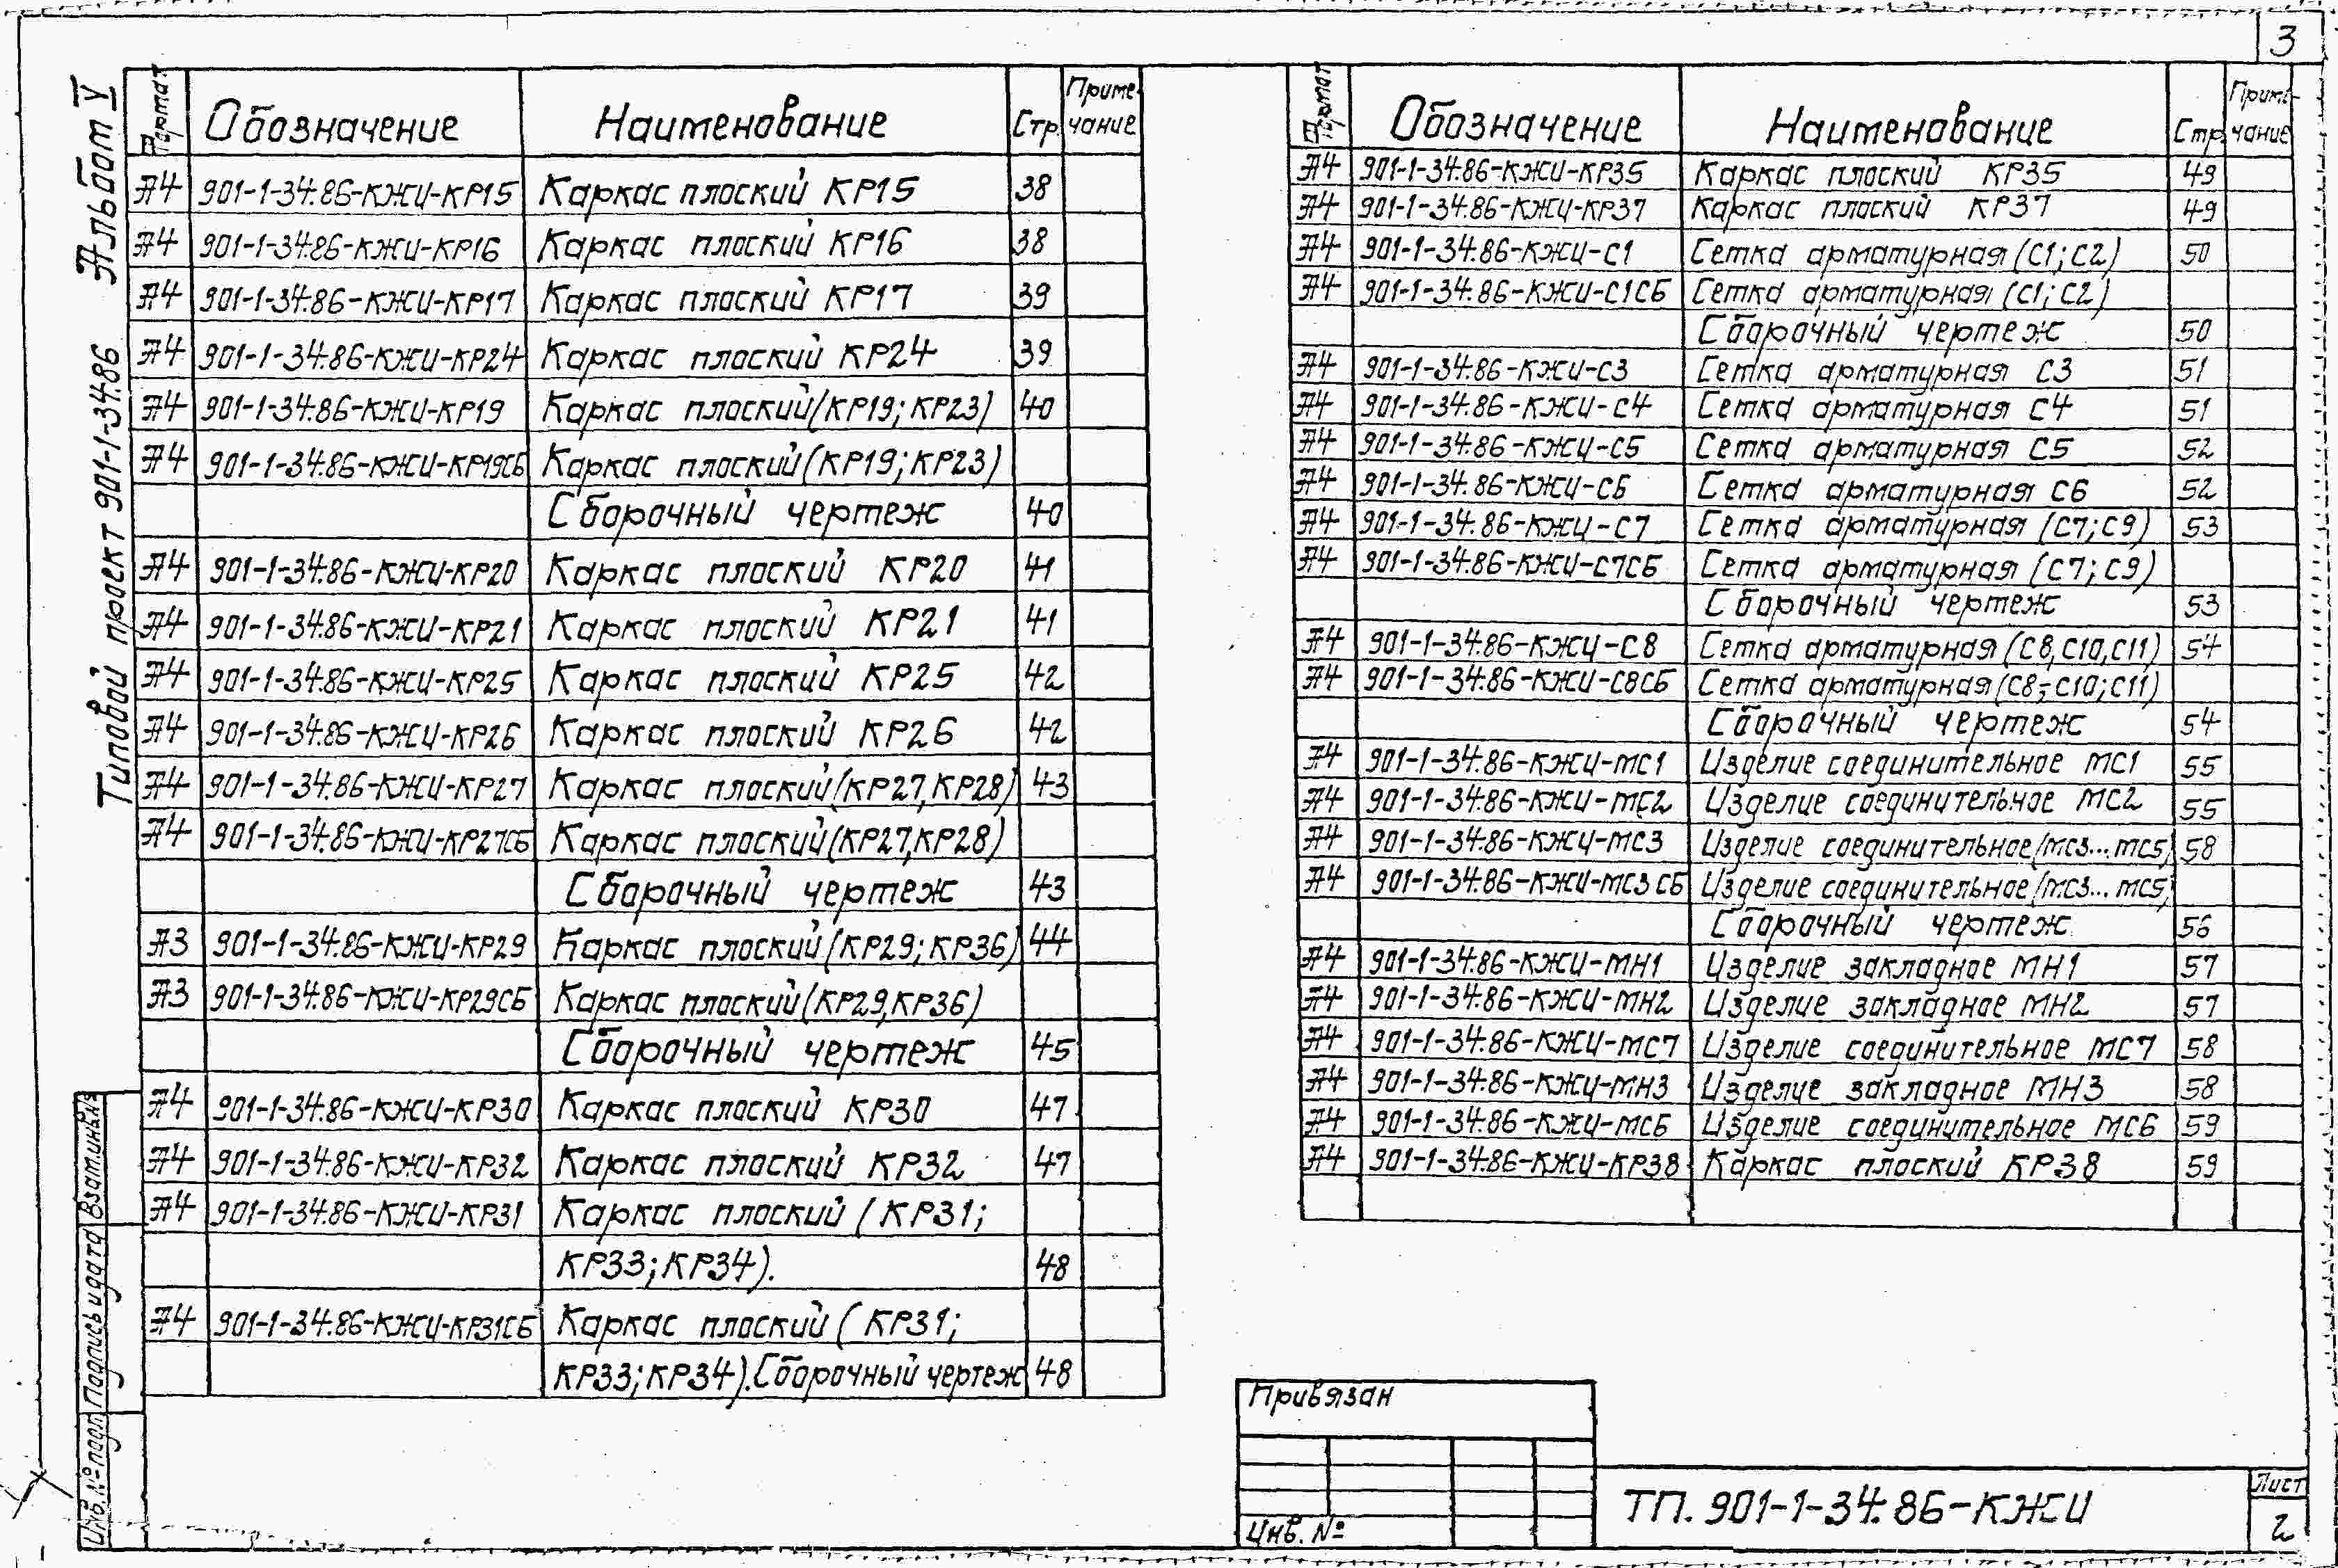 3
Типовой проект 901-1-34.86 Альбом V
Формат Обозначение Наименование Стр. Примечание
А4 901-1-34.86-КЖИ-КР15 Каркас плоский КР15 38
А4 901-1-34.86-КЖИ-КР16 Каркас плоский КР16 38
А4 901-1-34.86-КЖИ-КР17 Каркас плоский КР17 39
А4 901-1-34.86-КЖИ-КР24 Каркас плоский КР24 39
А4 901-1-34.86-КЖИ-КР19 Каркас плоский (КР19; КР23) 40
А4 901-1-34.86-КЖИ-КР19СБ Каркас плоский (КР19; КР23)
Сборочный чертеж 40
А4 901-1-34.86-КЖИ-КР20 Каркас плоский КР20 41
А4 901-1-34.86-КЖИ-КР21 Каркас плоский КР21 41
А4 901-1-34.86-КЖИ-КР25 Каркас плоский КР25 42
А4 901-1-34.86-КЖИ-КР26 Каркас плоский КР26 42
А4 901-1-34.86-КЖИ-КР27 Каркас плоский (КР27, КР28) 43
А4 901-1-34.86-КЖИ-КР27СБ Каркас плоский (КР27, КР28)
Сборочный чертеж 43
А3 901-1-34.86-КЖИ-КР29 Каркас плоский (КР29; КР36) 44
А3 901-1-34.86-КЖИ-КР29СБ Каркас плоский (КР29, КР36)
Сборочный чертеж 45
А4 901-1-34.86-КЖИ-КР30 Каркас плоский КР30 47
А4 901-1-34.86-КЖИ-КР32 Каркас плоский КР32 47
А4 901-1-34.86-КЖИ-КР31 Каркас плоский (КР31;
КР33; КР34). 48
А4 901-1-34.86-КЖИ-КР31СБ Каркас плоский (КР31;
КР33; КР34). Сборочный чертеж 48
Формат Обозначение Наименование Стр. Примечание
А4 901-1-34.86-КЖИ-КР35 Каркас плоский КР35 49
А4 901-1-34.86-КЖИ-КР37 Каркас плоский КР37 49
А4 901-1-34.86-КЖИ-С1 Сетка арматурная (С1; С2) 50
А4 901-1-34.86-КЖИ-С1СБ Сетка арматурная (С1; С2)
Сборочный чертеж 50
А4 901-1-34.86-КЖИ-С3 Сетка арматурная С3 51
А4 901-1-34.86-КЖИ-С4 Сетка арматурная С4 51
А4 901-1-34.86-КЖИ-С5 Сетка арматурная С5 52
А4 901-1-34.86-КЖИ-С6 Сетка арматурная С6 52
А4 901-1-34.86-КЖИ-С7 Сетка арматурная (С7; С9) 53
А4 901-1-34.86-КЖИ-С7СБ Сетка арматурная (С7; С9)
Сборочный чертеж 53
А4 901-1-34.86-КЖИ-С8 Сетка арматурная (С8, С10, С11) 54
А4 901-1-34.86-КЖИ-С8СБ Сетка арматурная (С8; С10; С11)
Сборочный чертеж 54
А4 901-1-34.86-КЖИ-МС1 Изделие соединительное МС1 55
А4 901-1-34.86-КЖИ-МС2 Изделие соединительное МС2 55
А4 901-1-34.86-КЖИ-МС3 Изделие соединительное (МС3...МС5) 58
А4 901-1-34.86-КЖИ-МС3СБ Изделие соединительное (МС3...МС5)
Сборочный чертеж 56
А4 901-1-34.86-КЖИ-МН1 Изделие закладное МН1 57
А4 901-1-34.86-КЖИ-МН2 Изделие закладное МН2 57
А4 901-1-34.86-КЖИ-МС7 Изделие соединительное МС7 58
А4 901-1-34.86-КЖИ-МН3 Изделие закладное МН3 58
А4 901-1-34.86-КЖИ-МС6 Изделие соединительное МС6 59
А4 901-1-34.86-КЖИ-КР38 Каркас плоский КР38 59
Инв. № подл Подпись и дата Взам инв №
Привязан
Инв. №
ТП. 901-1-34.86-КЖИ
Лист
2